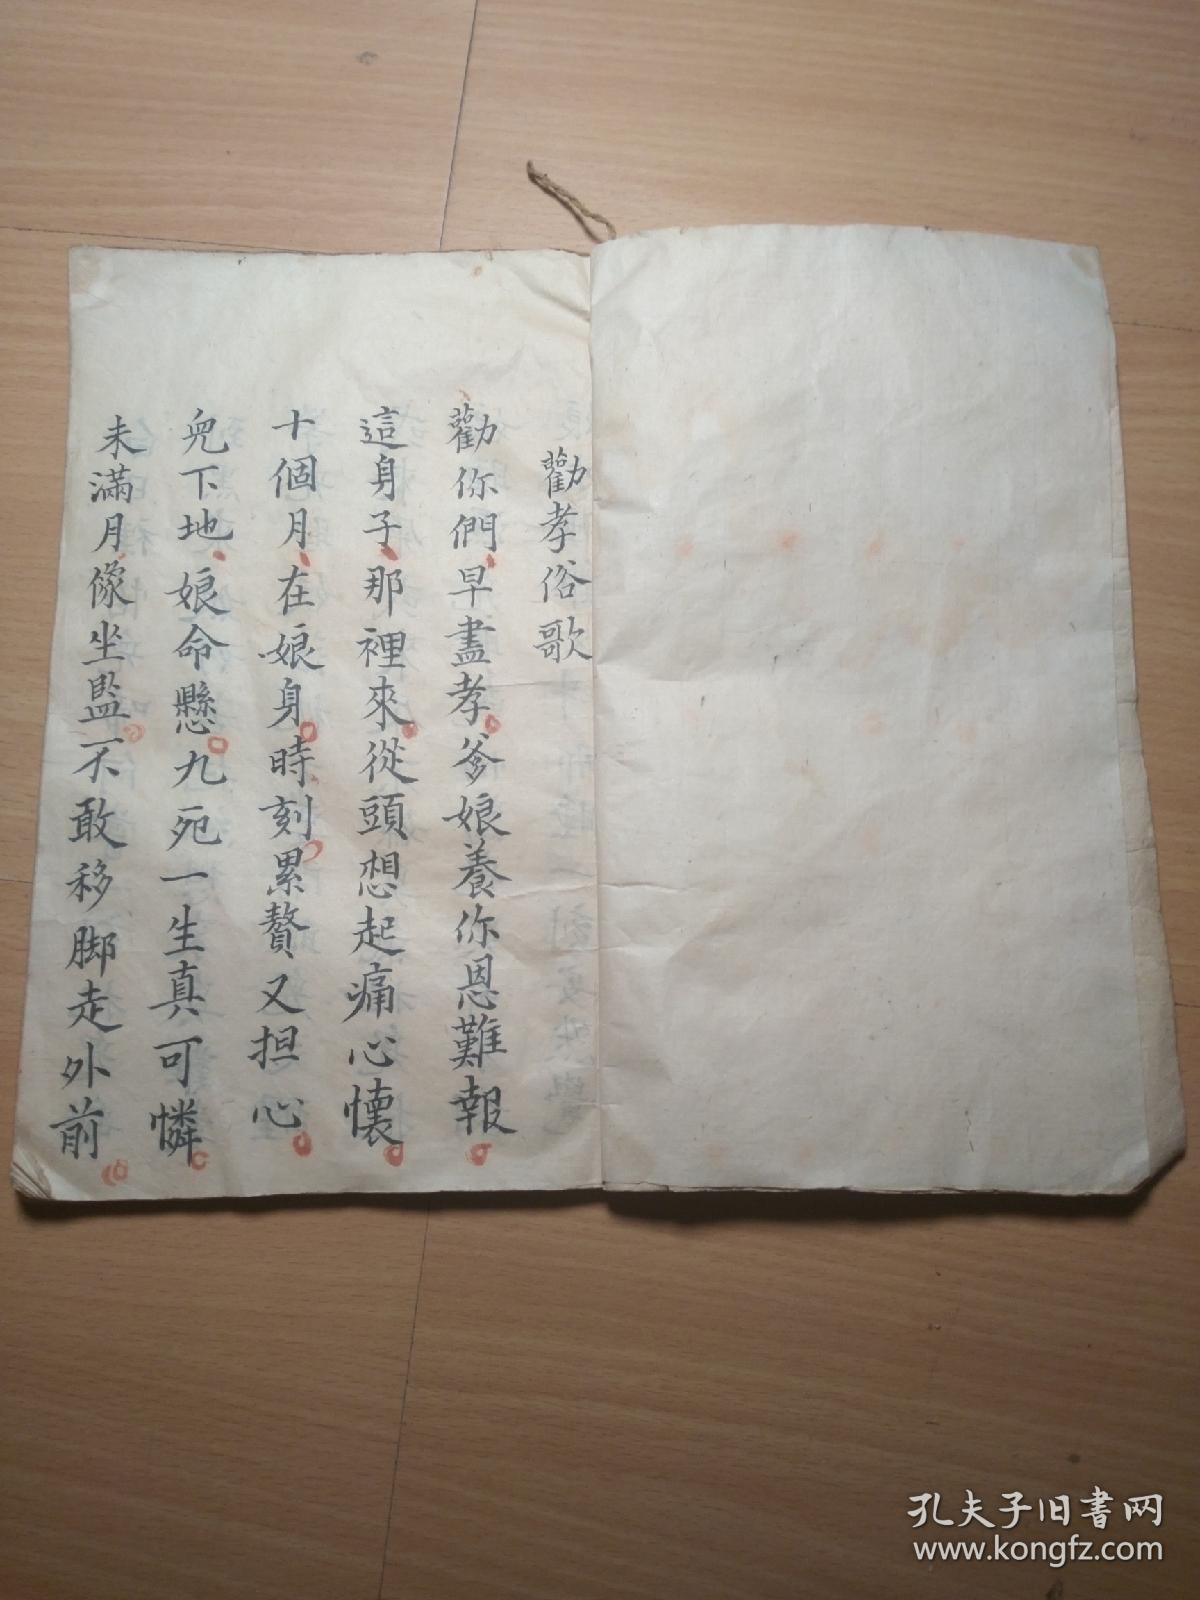 勸孝俗歌
勸你們早盡孝爹娘養你恩難報
這身子那裡來從頭想起痛心懷
十個月在娘身時刻累贅又担心
兒下地娘命懸九死一生真可憐
未滿月像坐監不敢移脚走外前
孔夫子旧书网
www.kongfz.com